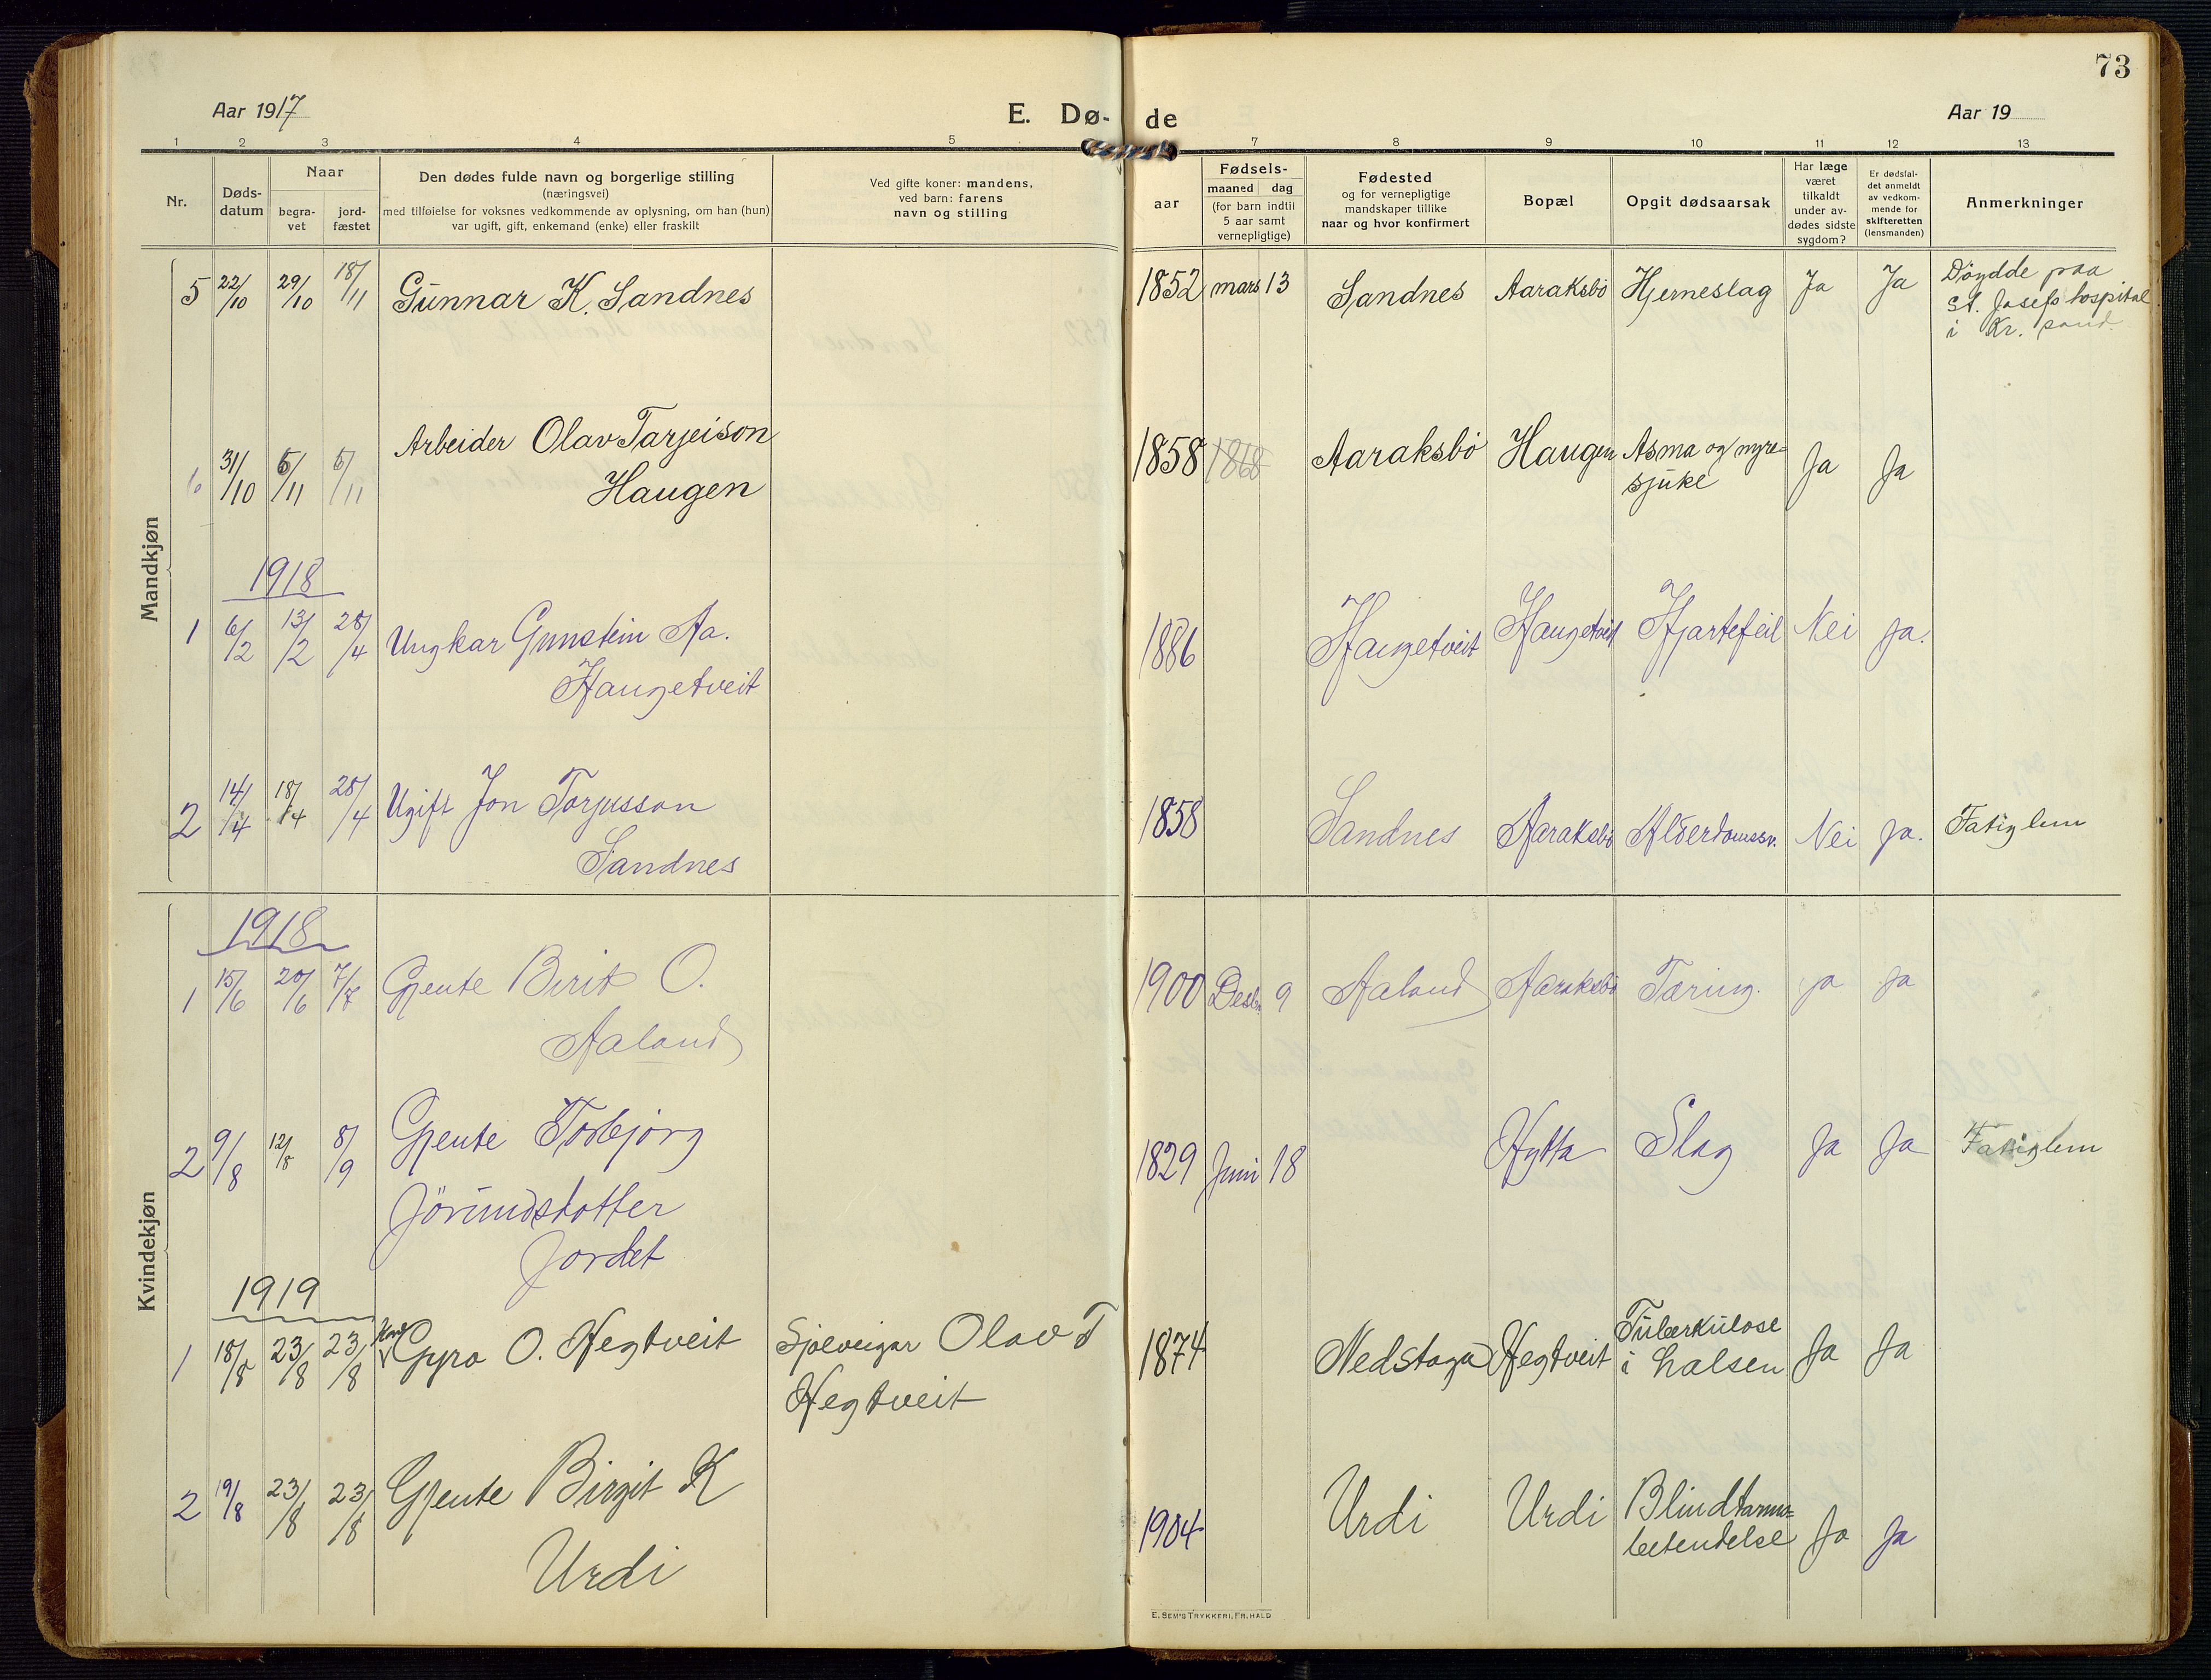 73
Aar 1917
E. Dø- de
Aar 19
1 2 3 4 5 7 8 9 10 11 12 13
Nr.
Døds-
datum
Naar
begra-
vet
jord-
fæstet
Den dødes fulde navn og borgerlige stilling
(næringsvei)
med tilføielse for voksnes vedkommende av oplysning, om han (hun)
var ugift, gift, enkemand (enke) eller fraskilt
Ved gifte koner: mandens,
ved barn: farens
navn og stilling
Fødsels-
aar
maaned dag
(for barn indtil
5 aar samt
vernepligtige)
Fødested
og for vernepligtige
mandskaper tillike
naar og hvor konfirmert
Bopæl
Opgit dødsaarsak
Har læge
været
tilkaldt
under av-
dødes sidste
sygdom?
Er dødsfal-
det anmeldt
av vedkom-
mende for
skifteretten
(lensmanden)
Anmerkninger
Mandkjøn
5 22/10 29/10 18/11 Gunnar K. Sandnes 1852 mars 13 Sandnes Aaraksbø Hjerneslag Ja Ja Döydde paa
St. Josefs hospital
i Kr. sand.
6 31/10 6/11 6/11 Arbeider Olav Tarjeison 1858 1868 Aaraksbø Haugen Asma og nyre-
Haugen sjuke Ja Ja
1918
1 6/2 13/2 28/4 Ungkar Gunstein Aa. 1886 Haugetveit Haugetveit Hjartefeil Nei ja.
Haugetveit
2 14/4 18/4 28/4 Ugift Jon Torjusson 1858 Sandnes Aaraksbø Alderdomssv. Nei ja. Fatiglem
Sandnes
Kvindekjøn
1918
1 15/6 20/6 7/7 Gjente Birit O. 1900 Desbr. 9 Aaland Aaraksbø Tæring. ja ja
Aaland
2 9/8 12/8 8/9 Gjente Torbjørg 1829 Juni 18 Hytta Slag Ja Ja Fatiglem
Jörundsdotter
Jordet
1919
1 18/8 23/8 23/8 Kone Gyro O. Hegtveit Sjølveigar Olav T 1874 Nedstoga Hegtveit Tuberkulose
Hegtveit i halsen Ja Ja
2 19/8 23/8 23/8 Gjente Birgit K 1904 Urdi Urdi Blindtarms-
Urdi betendelse Ja Ja
E. SEM'S TRYKKERI, FR.HALD